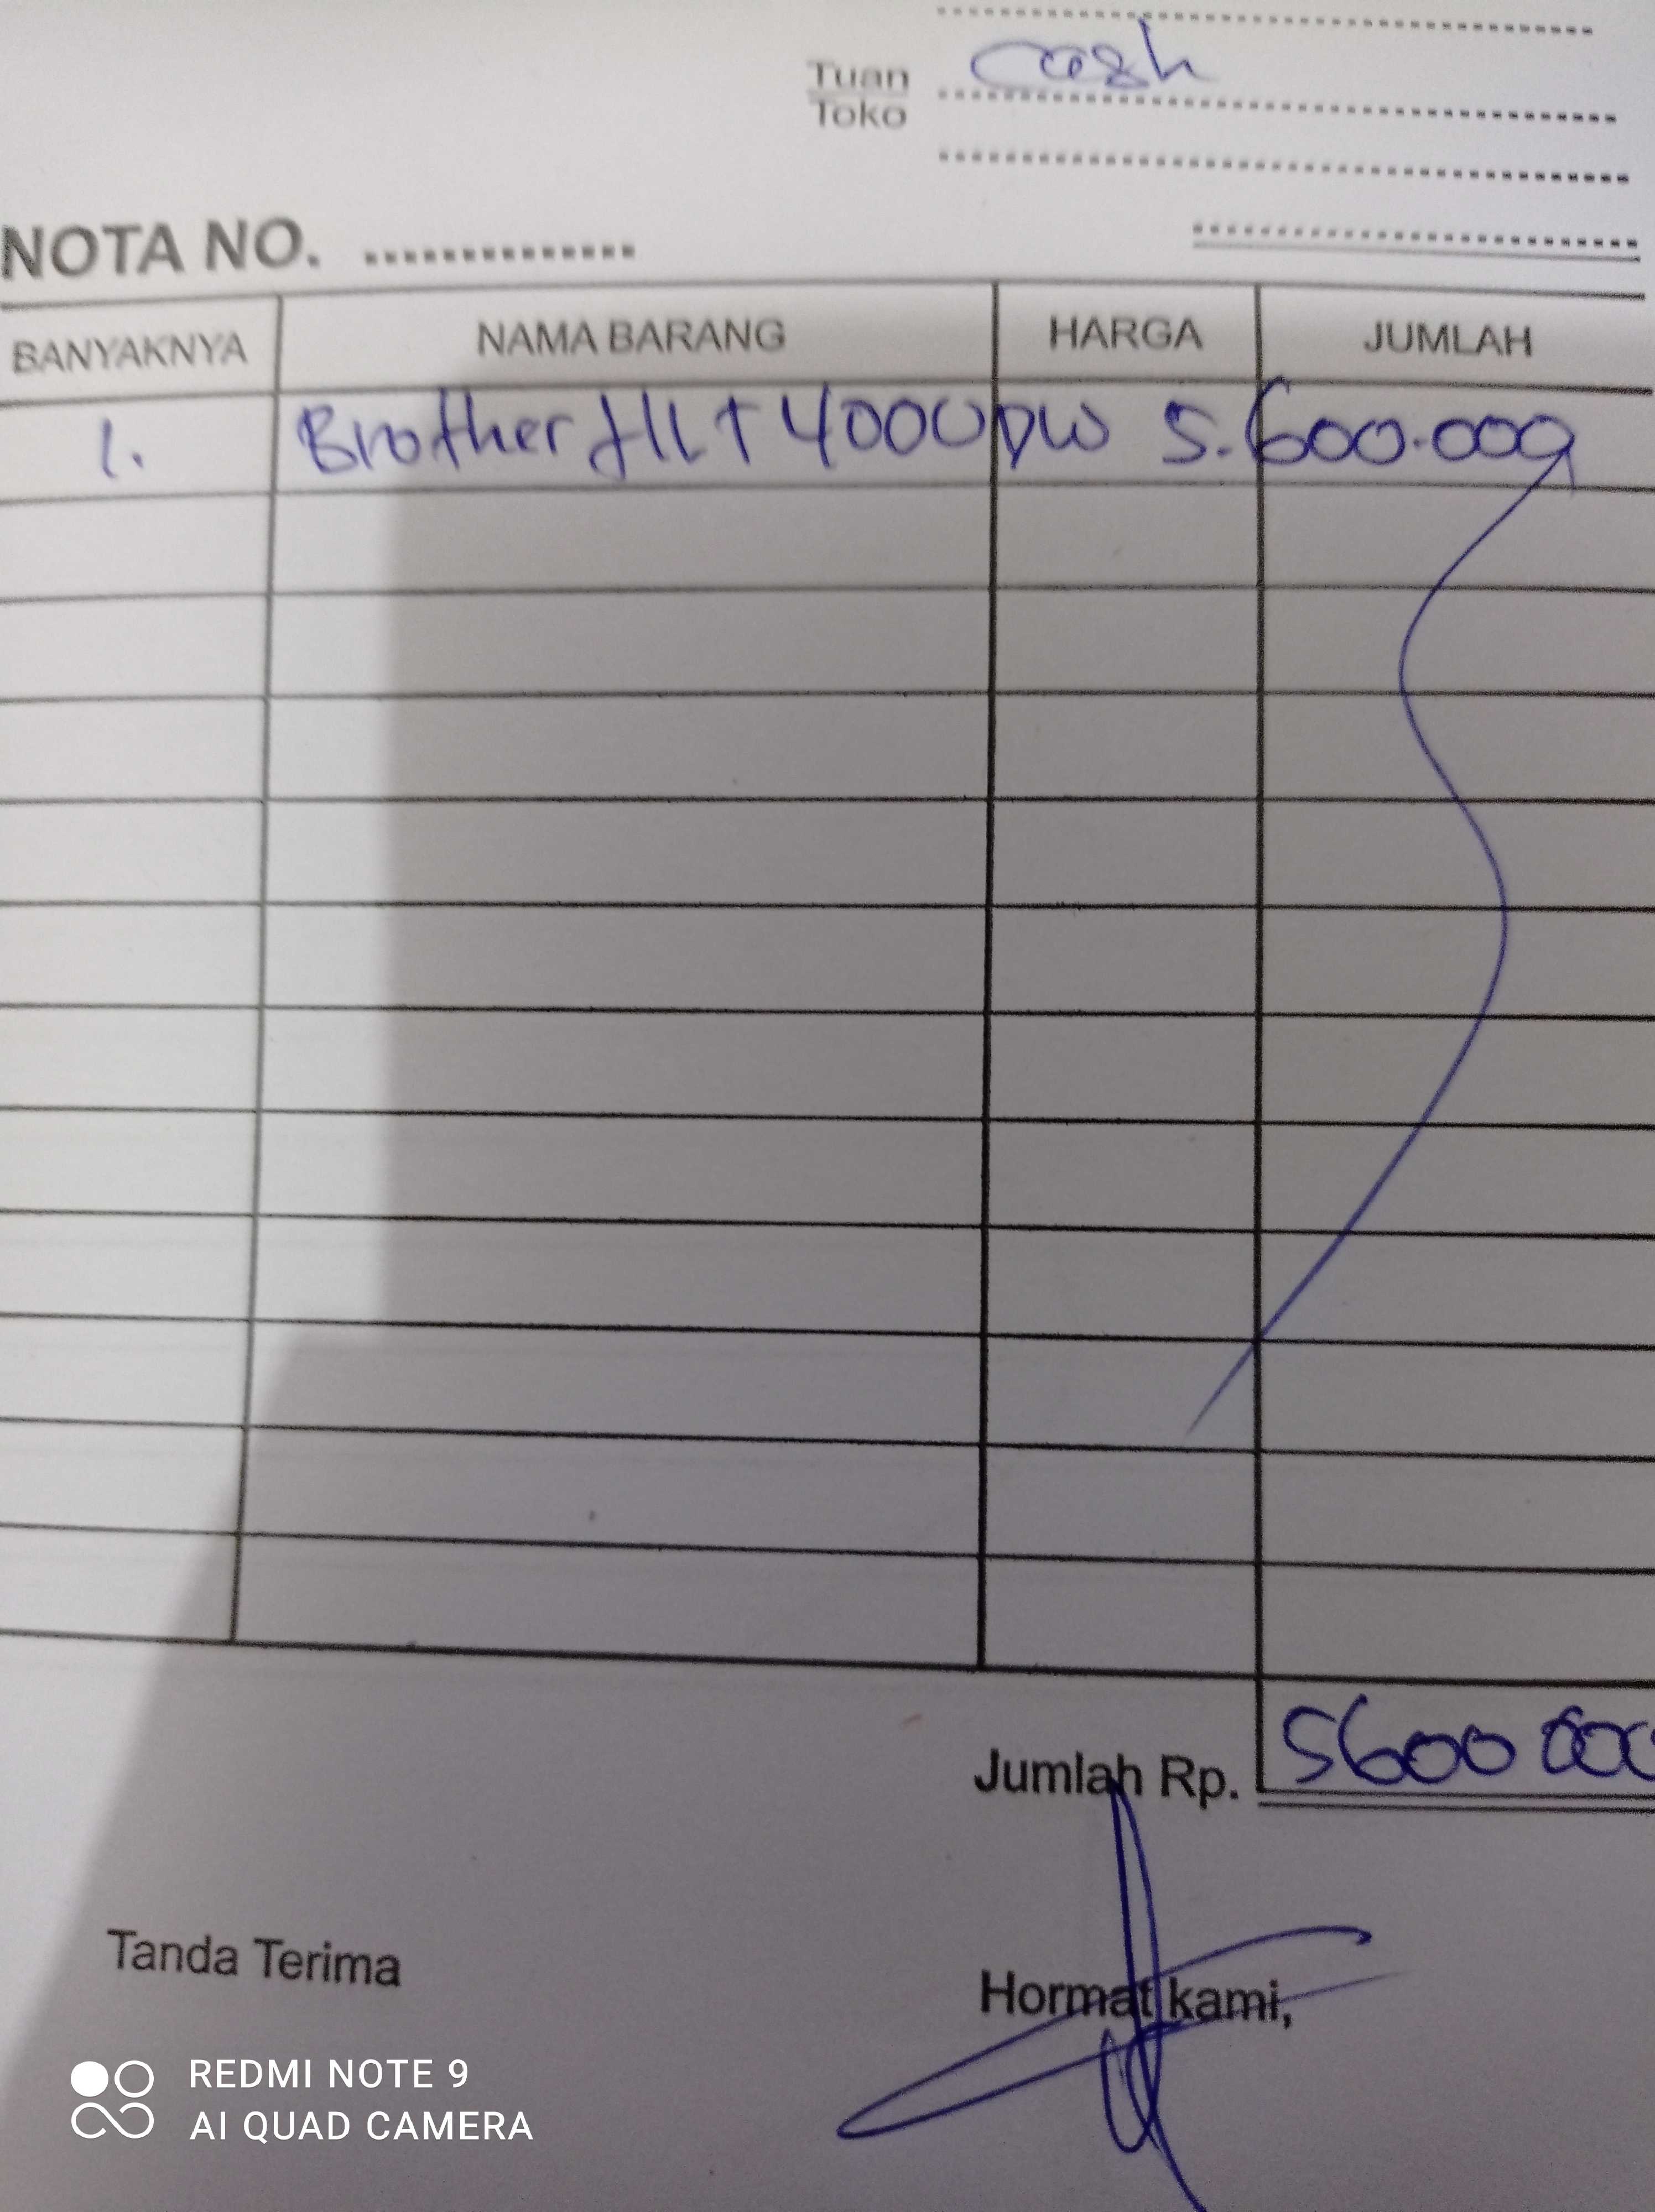 Tuan
Toko
Cash
NOTA NO. ..............
BANYAKNYA NAMA BARANG HARGA JUMLAH
1. Brother HLT 4000DW 5.600.000
Jumlah Rp. 5600 000
Tanda Terima
Hormat kami,
REDMI NOTE 9
AI QUAD CAMERA